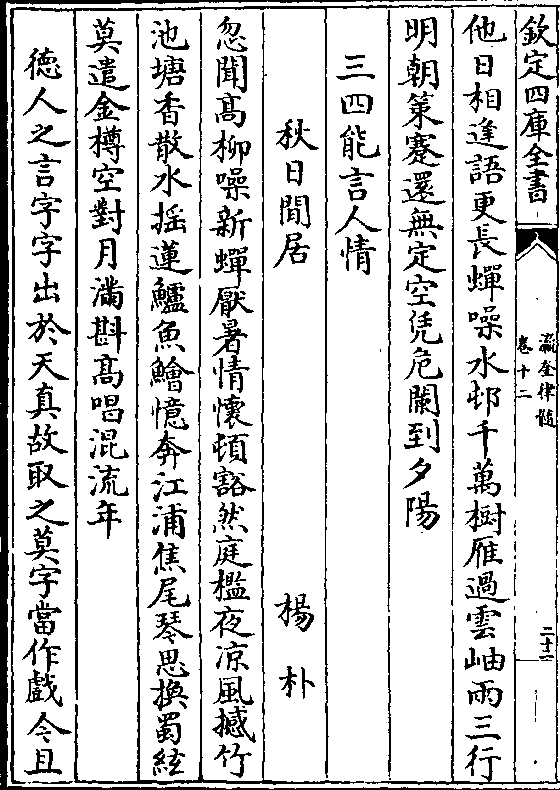 欽定四庫全書
瀛奎律髓
卷十二
二十二
他日相逢語更長蟬噪水邨千萬樹雁過雲岫兩三行
明朝策蹇還無定空凭危闌到夕陽
三四能言人情
秋日閒居 楊朴
忽聞髙柳噪新蟬厭暑情懷頓豁然庭檻夜凉風撼竹
池塘香散水摇蓮鱸魚鱠憶奔江浦焦尾琴思換蜀絃
莫遣金樽空對月滿斟髙唱混流年
徳人之言字字出於天真故取之莫字當作戲今且